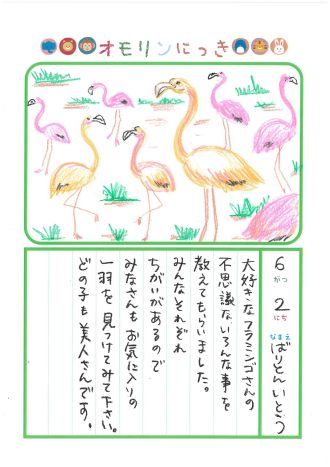 オモリンにっき
6がつ2にち なまえ ばりとんいとう
大好きなフラミンゴさんの
不思議ないろんな事を
教えてもらいました。
みんなそれぞれ
ちがいがあるので
みなさんもお気に入りの
一羽を見つけてみて下さい。
どの子も美人さんです。